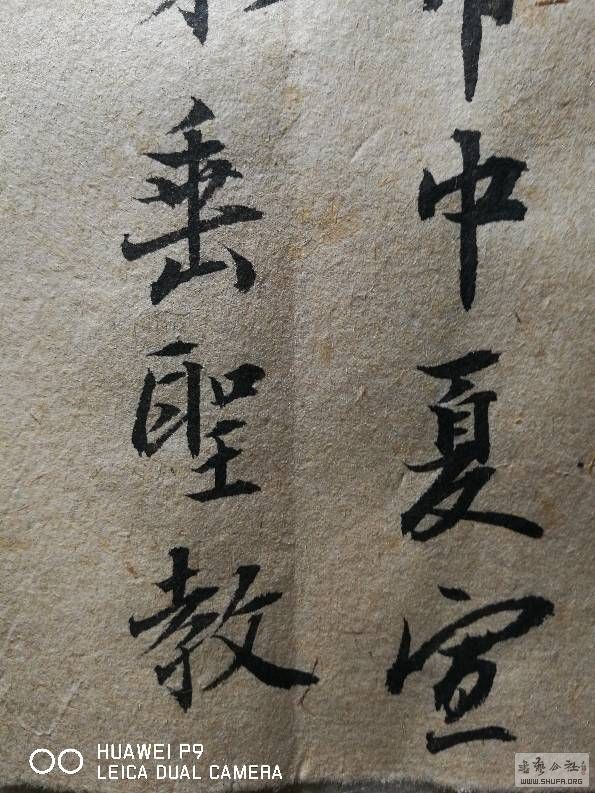 中夏宣
垂聖教
HUAWEI P9
LEICA DUAL CAMERA
书艺公社
WWW.SHUFA.ORG